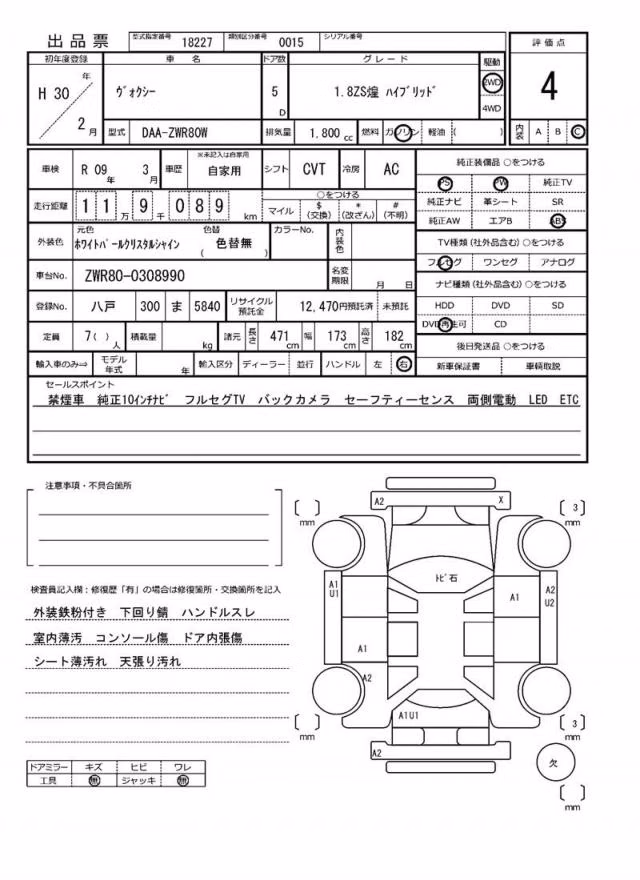 出品票 型式指定番号 18227 類別区分番号 0015 シリアル番号
評価点
4
内装 A B C
初年度登録 車名 ドア数 グレード 駆動
H 30 年 2 月
ヴォクシー 5 D 1.8ZS煌 ハイブリッド 2WD
4WD
型式 DAA-ZWR80W 排気量 1,800 cc 燃料 ガソリン 軽油 ( )
車検 R 09 年 3 月 車歴 ※未記入は自家用 自家用 シフト CVT 冷房 AC
走行距離 1 1 万 9 千 0 8 9 km ○をつける
マイル $(交換) *(改ざん) #(不明)
外装色 元色 ホワイトパールクリスタルシャイン 色替 ( 色替無 ) カラーNo. 内装色
車台No. ZWR80-0308990 名変期限 月 日
登録No. 八戸 300 ま 5840 リサイクル預託金 12,470円預託済 未預託
定員 7( ) 人 積載量 kg 諸元 長さ 471 cm 幅 173 cm 高さ 182 cm
輸入車のみ⇒ モデル年式 年 輸入区分 ディーラー 並行 ハンドル 左 右
純正装備品 ○をつける
PS PW 純正TV
純正ナビ 革シート SR
純正AW エアB ABS
TV種類(社外品含む)○をつける
フルセグ ワンセグ アナログ
ナビ種類(社外品含む)○をつける
HDD DVD SD
DVD再生可 CD
後日発送品 ○をつける
新車保証書 車輌取説
セールスポイント
禁煙車 純正10インチナビ フルセグTV バックカメラ セーフティーセンス 両側電動 LED ETC
注意事項・不具合箇所
検査員記入欄：修復歴「有」の場合は修復箇所・交換箇所を記入
外装鉄粉付き 下回り錆 ハンドルスレ
室内薄汚 コンソール傷 ドア内張傷
シート薄汚れ 天張り汚れ
ドアミラー キズ ヒビ ワレ
工具 無 ジャッキ 無
A2 X
[ ] mm
[ 3 ] mm
トビ石
A1
U1
A1
A2
U2
A1
A2
A1U1
[ ] mm
[ 3 ] mm
A2
欠
[ ] mm